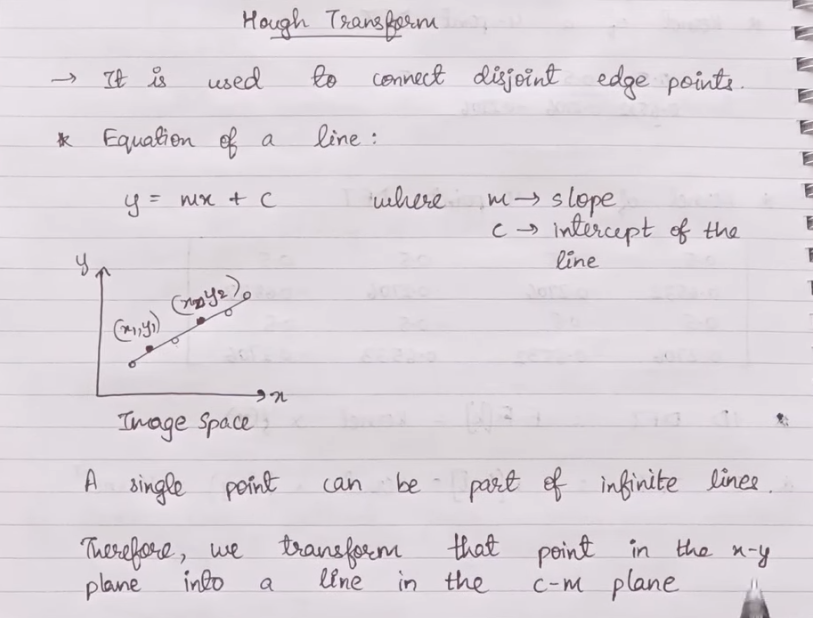 Hough Transform
→ It is used to connect disjoint edge points.
* Equation of a line:
y = mx + c where m → slope
c → intercept of the
line
y
(x₂,y₂)
(x₁,y₁)
x
Image Space
A single point can be part of infinite lines.
Therefore, we transform that point in the x-y
plane into a line in the c-m plane